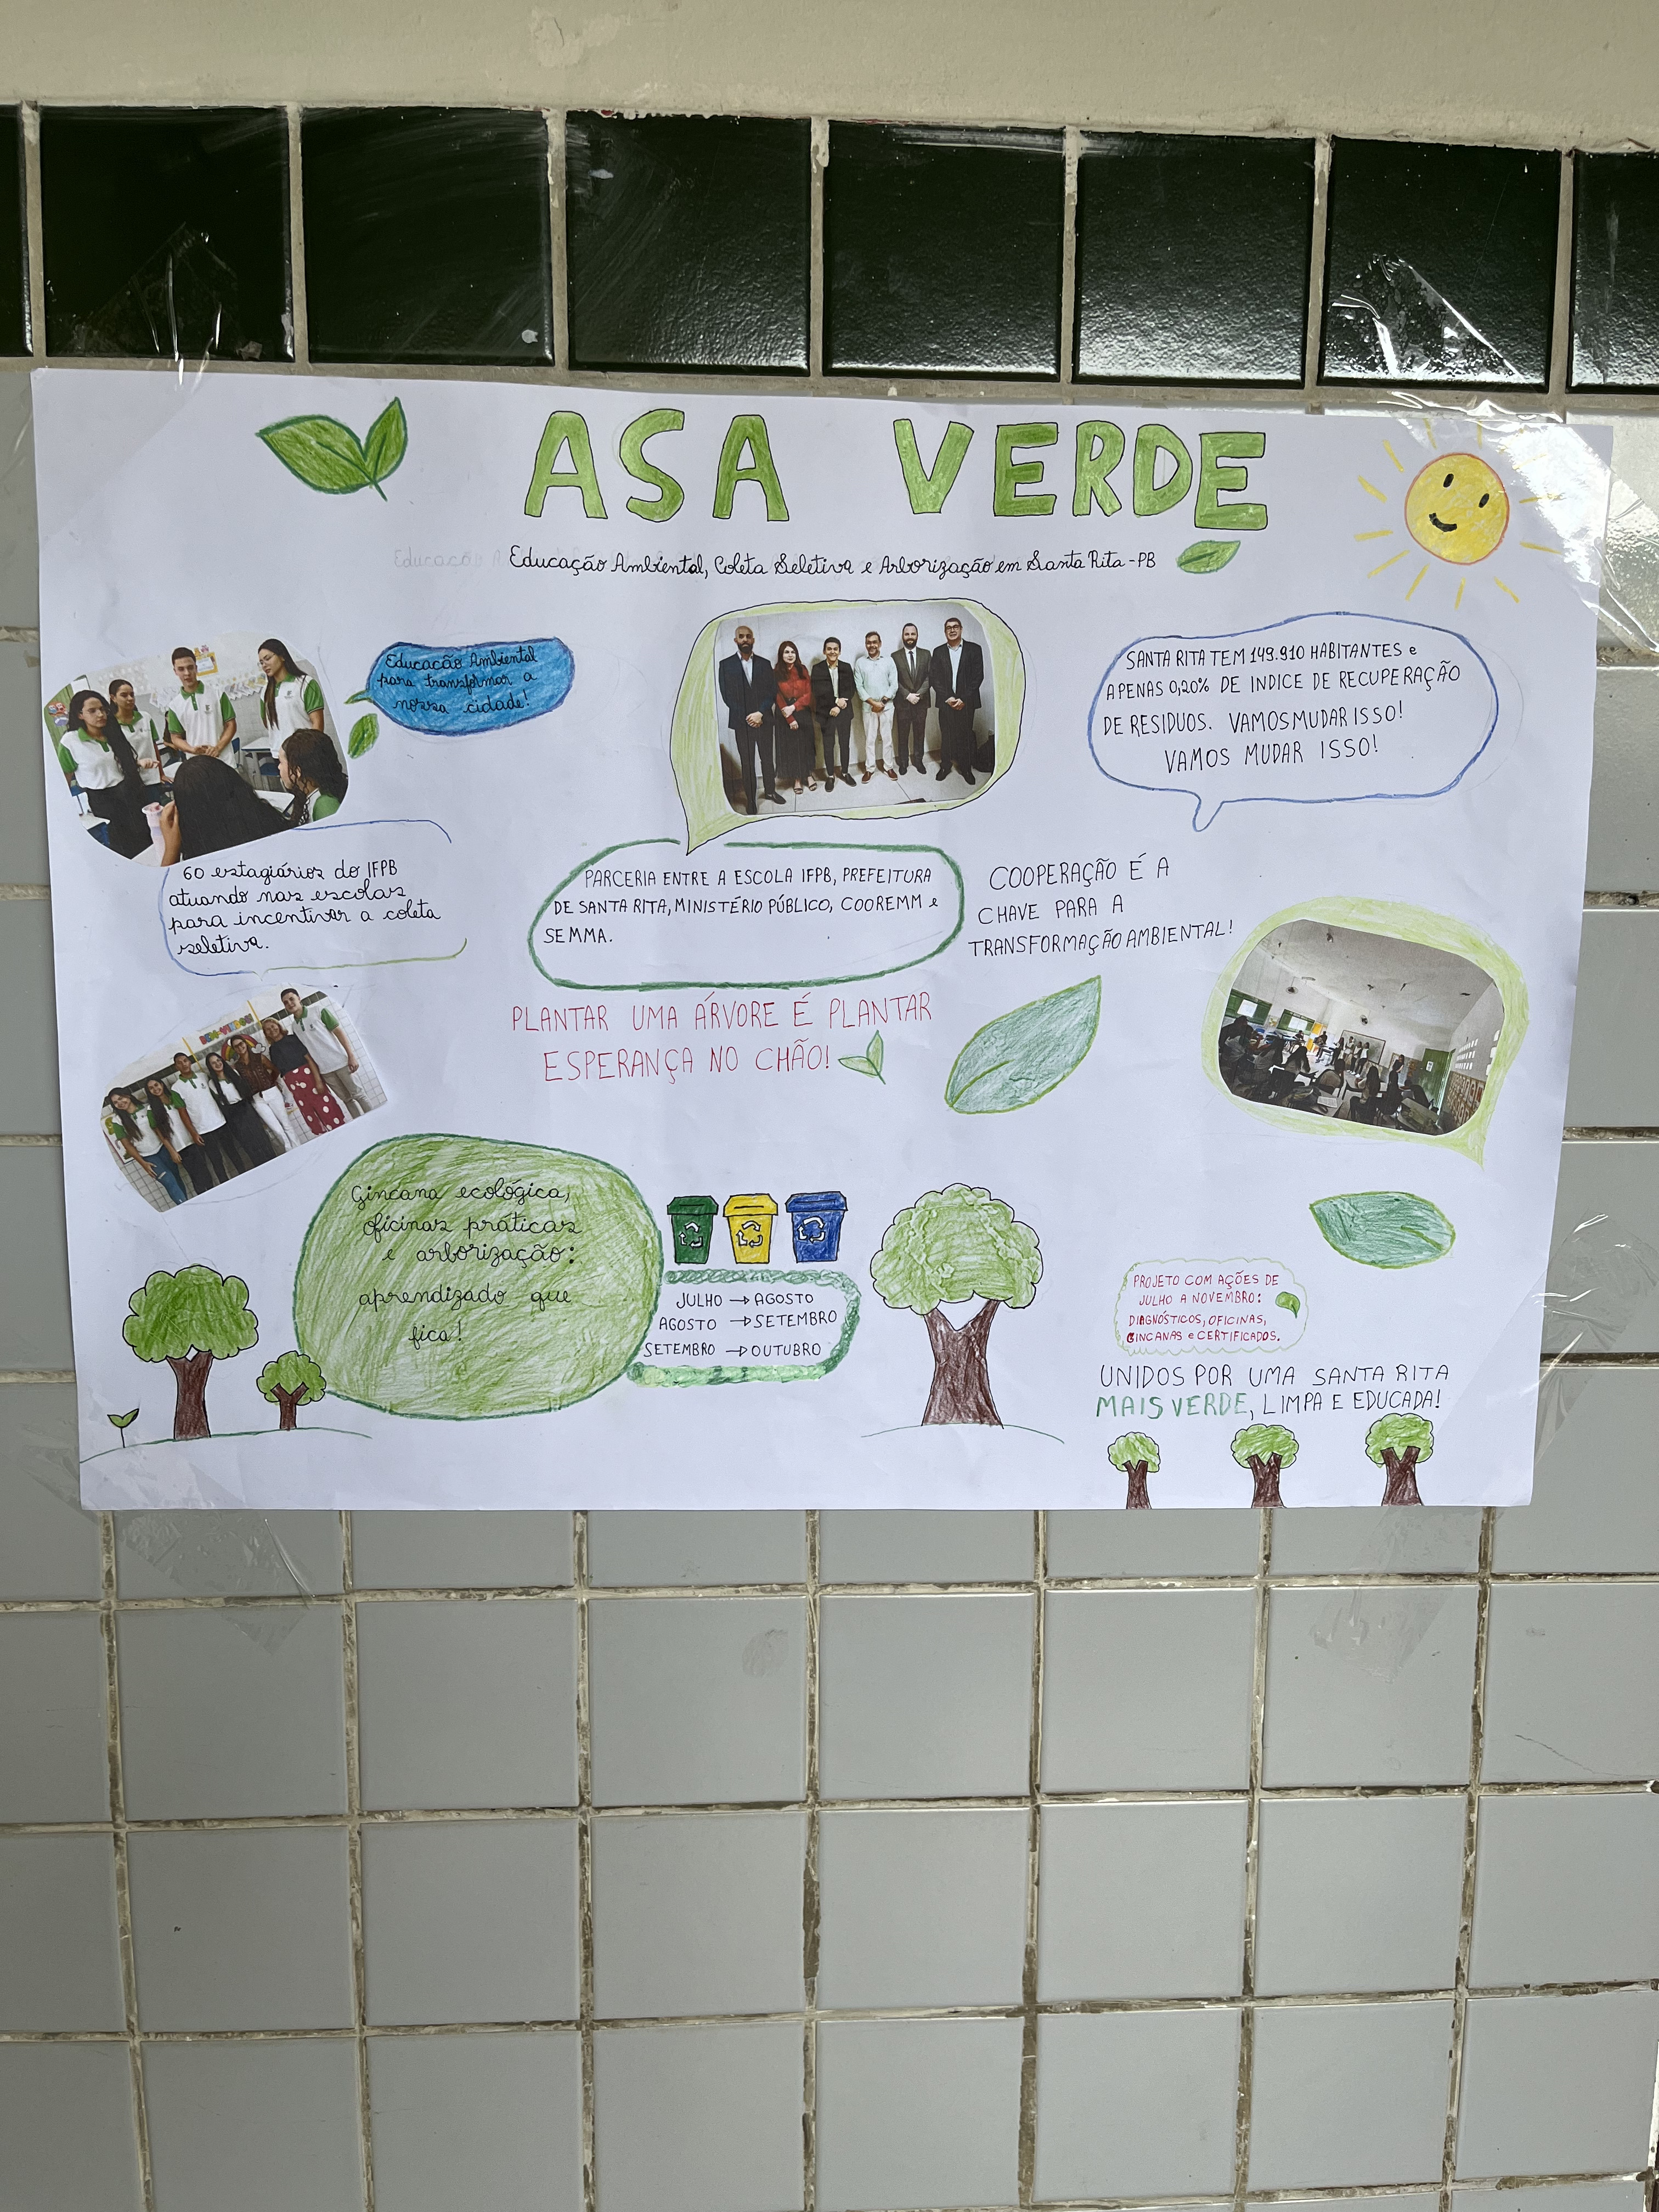 ASA VERDE
Educação Ambiental, Coleta Seletiva e Arborização em Santa Rita - PB
Educação Ambiental
para transformar a
nossa cidade!
SANTA RITA TEM 149.910 HABITANTES e
APENAS 0,20% DE INDICE DE RECUPERAÇÃO
DE RESIDUOS. VAMOS MUDAR ISSO!
VAMOS MUDAR ISSO!
60 estagiários do IFPB
atuando nas escolas
para incentivar a coleta
seletiva.
PARCERIA ENTRE A ESCOLA IFPB, PREFEITURA
DE SANTA RITA, MINISTÉRIO PÚBLICO, COOREMM e
SEMMA.
COOPERAÇÃO É A
CHAVE PARA A
TRANSFORMAÇÃO AMBIENTAL!
PLANTAR UMA ÁRVORE É PLANTAR
ESPERANÇA NO CHÃO!
Gincana ecológica,
oficinas práticas
e arborização:
aprendizado que
fica!
JULHO → AGOSTO
AGOSTO → SETEMBRO
SETEMBRO → OUTUBRO
PROJETO COM AÇÕES DE
JULHO A NOVEMBRO:
DIAGNÓSTICOS, OFICINAS,
GINCANAS e CERTIFICADOS.
UNIDOS POR UMA SANTA RITA
MAIS VERDE, LIMPA E EDUCADA!